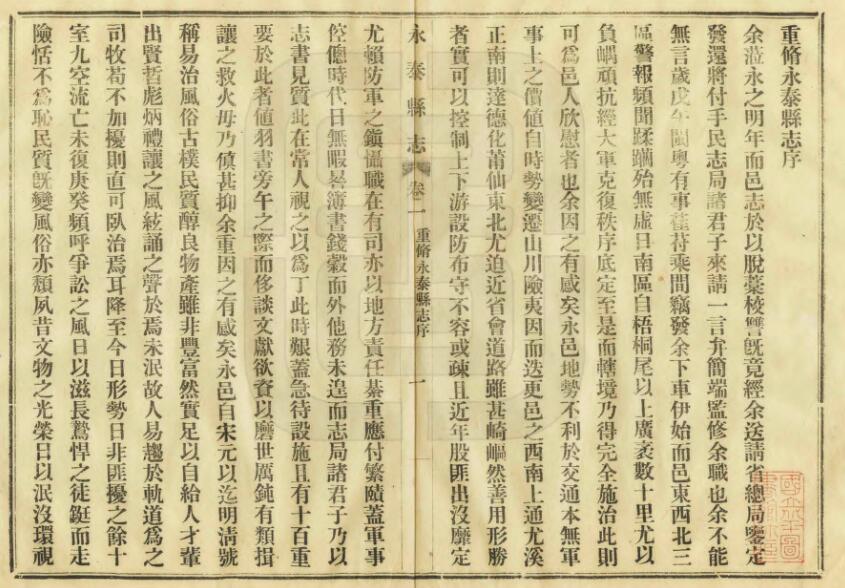 重脩永泰縣志序
余涖永之明年而邑志於以脫藁校讐旣竟經余送請省總局鑒定
發還將付手民志局諸君子來請一言弁簡端監修余職也余不能
無言歲戊午閩粤有事萑苻乘間竊發余下車伊始而邑東西北三
區警報頻聞蹂躪殆無虛日南區自梧桐尾以上廣袤數十里尤以
負嵎頑抗經大軍克復秩序底定至是而轄境乃得完全施治此則
可爲邑人欣慰者也余因之有感矣永邑地勢不利於交通本無軍
事上之價値自時勢變遷山川險夷因而迭更邑之西南上通尤溪
正南則達德化莆仙東北尤迫近省會道路雖甚崎嶇然善用形勝
者實可以控制上下游設防布守不容或疎且近年股匪出沒靡定
永泰縣志
卷一
重脩永泰縣志序
一
尤賴防軍之鎭懾職在有司亦以地方責任綦重應付繁賾蓋軍事
倥傯時代日無暇晷簿書錢穀而外他務未遑而志局諸君子乃以
志書見質此在常人視之以爲丁此時艱蓋急待設施且有十百重
要於此者値羽書旁午之際而侈談文獻欲資以磨世厲鈍有類揖
讓之救火毋乃傎甚抑余重因之有感矣永邑自宋元以迄明淸號
稱易治風俗古樸民質醇良物產雖非豐富然實足以自給人才輩
出賢哲彪炳禮讓之風絃誦之聲於焉未泯故人易趨於軌道爲之
司牧苟不加擾則直可臥治焉耳降至今日形勢日非匪擾之餘十
室九空流亡未復庚癸頻呼爭訟之風日以滋長驁悍之徒鋌而走
險恬不爲恥民質旣變風俗亦頹夙昔文物之光榮日以泯沒環視